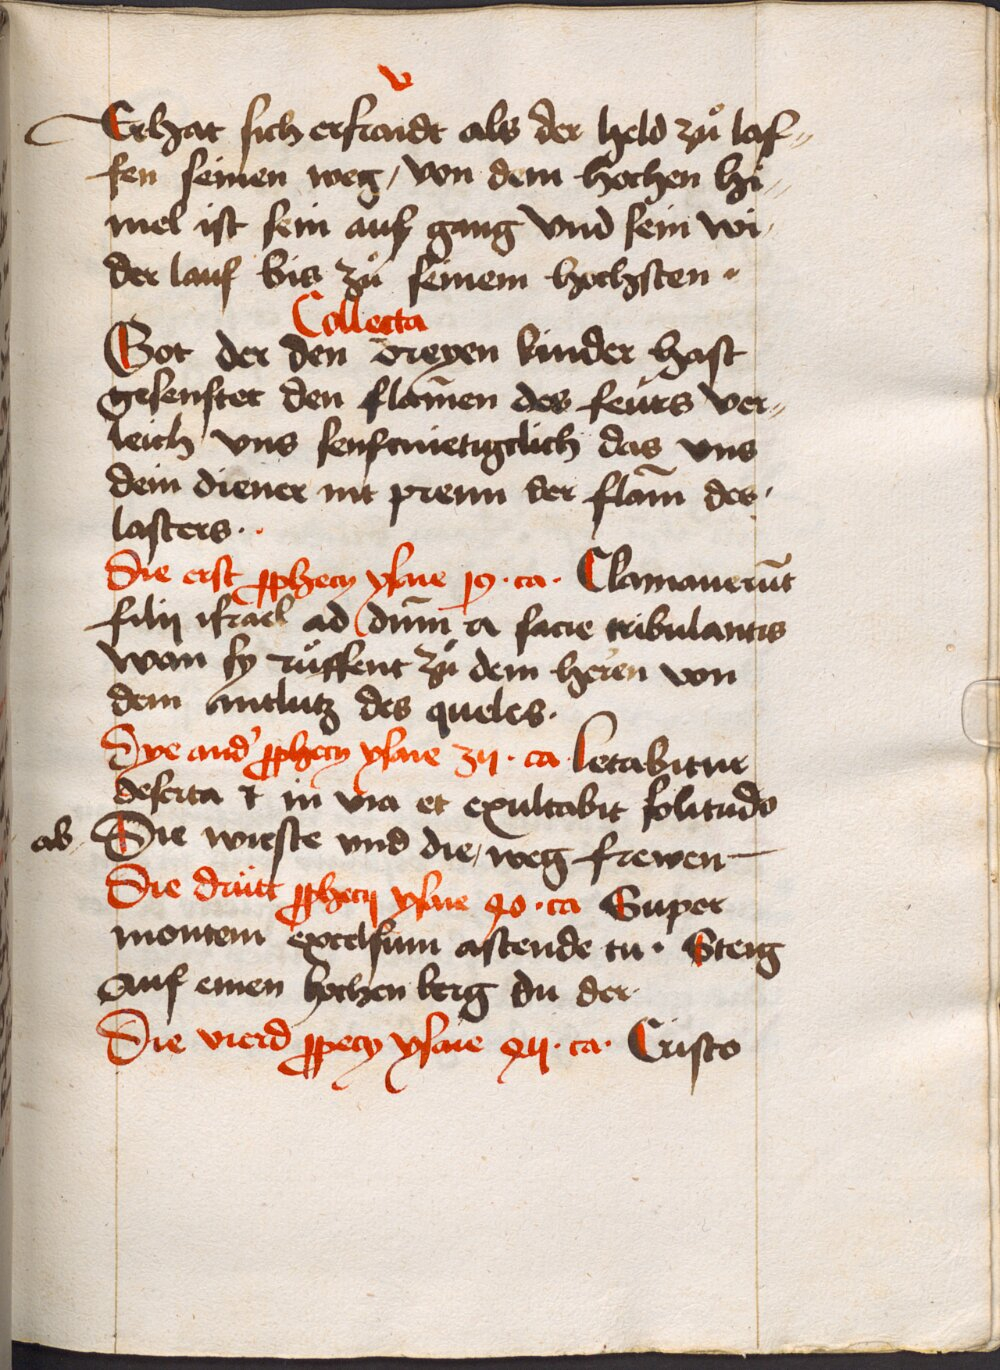 v
Er hat sich erfraudt als der held zuͦ laf„
fen seinen weg / von dem hochen hi„
mel ist sein auf gang vnd sein wi„
der lauf bis zuͦ seinem hochsten ·
Collecta
Got der den dreyen kinder hast
gesenftet den flam̄en des feürs ver„
leich vns senftmietigclich das vns
dein diener nit prenn der flam̄ des
lasters ·
Die erst ꝓphecy ysaie 19 · ca · Clamauerūt
filij israel ad dūm a facie tribulantis
wan sy ruͦffent zuͦ dem heren von
dem antlutz des queles ·
Dye and' ꝓphecy ysaie 3ij · ca letabitur
deserta et in via et exultabit solitudo
ab Die wieste vnd die / weg frewen
Die drütt ꝓphecij ysaie 40 · ca Super
montem excelsum astende tu · Steig
auf einen hochen berg du der
Die vierd ꝓpecy ysaie 4ij · ca · Cristo